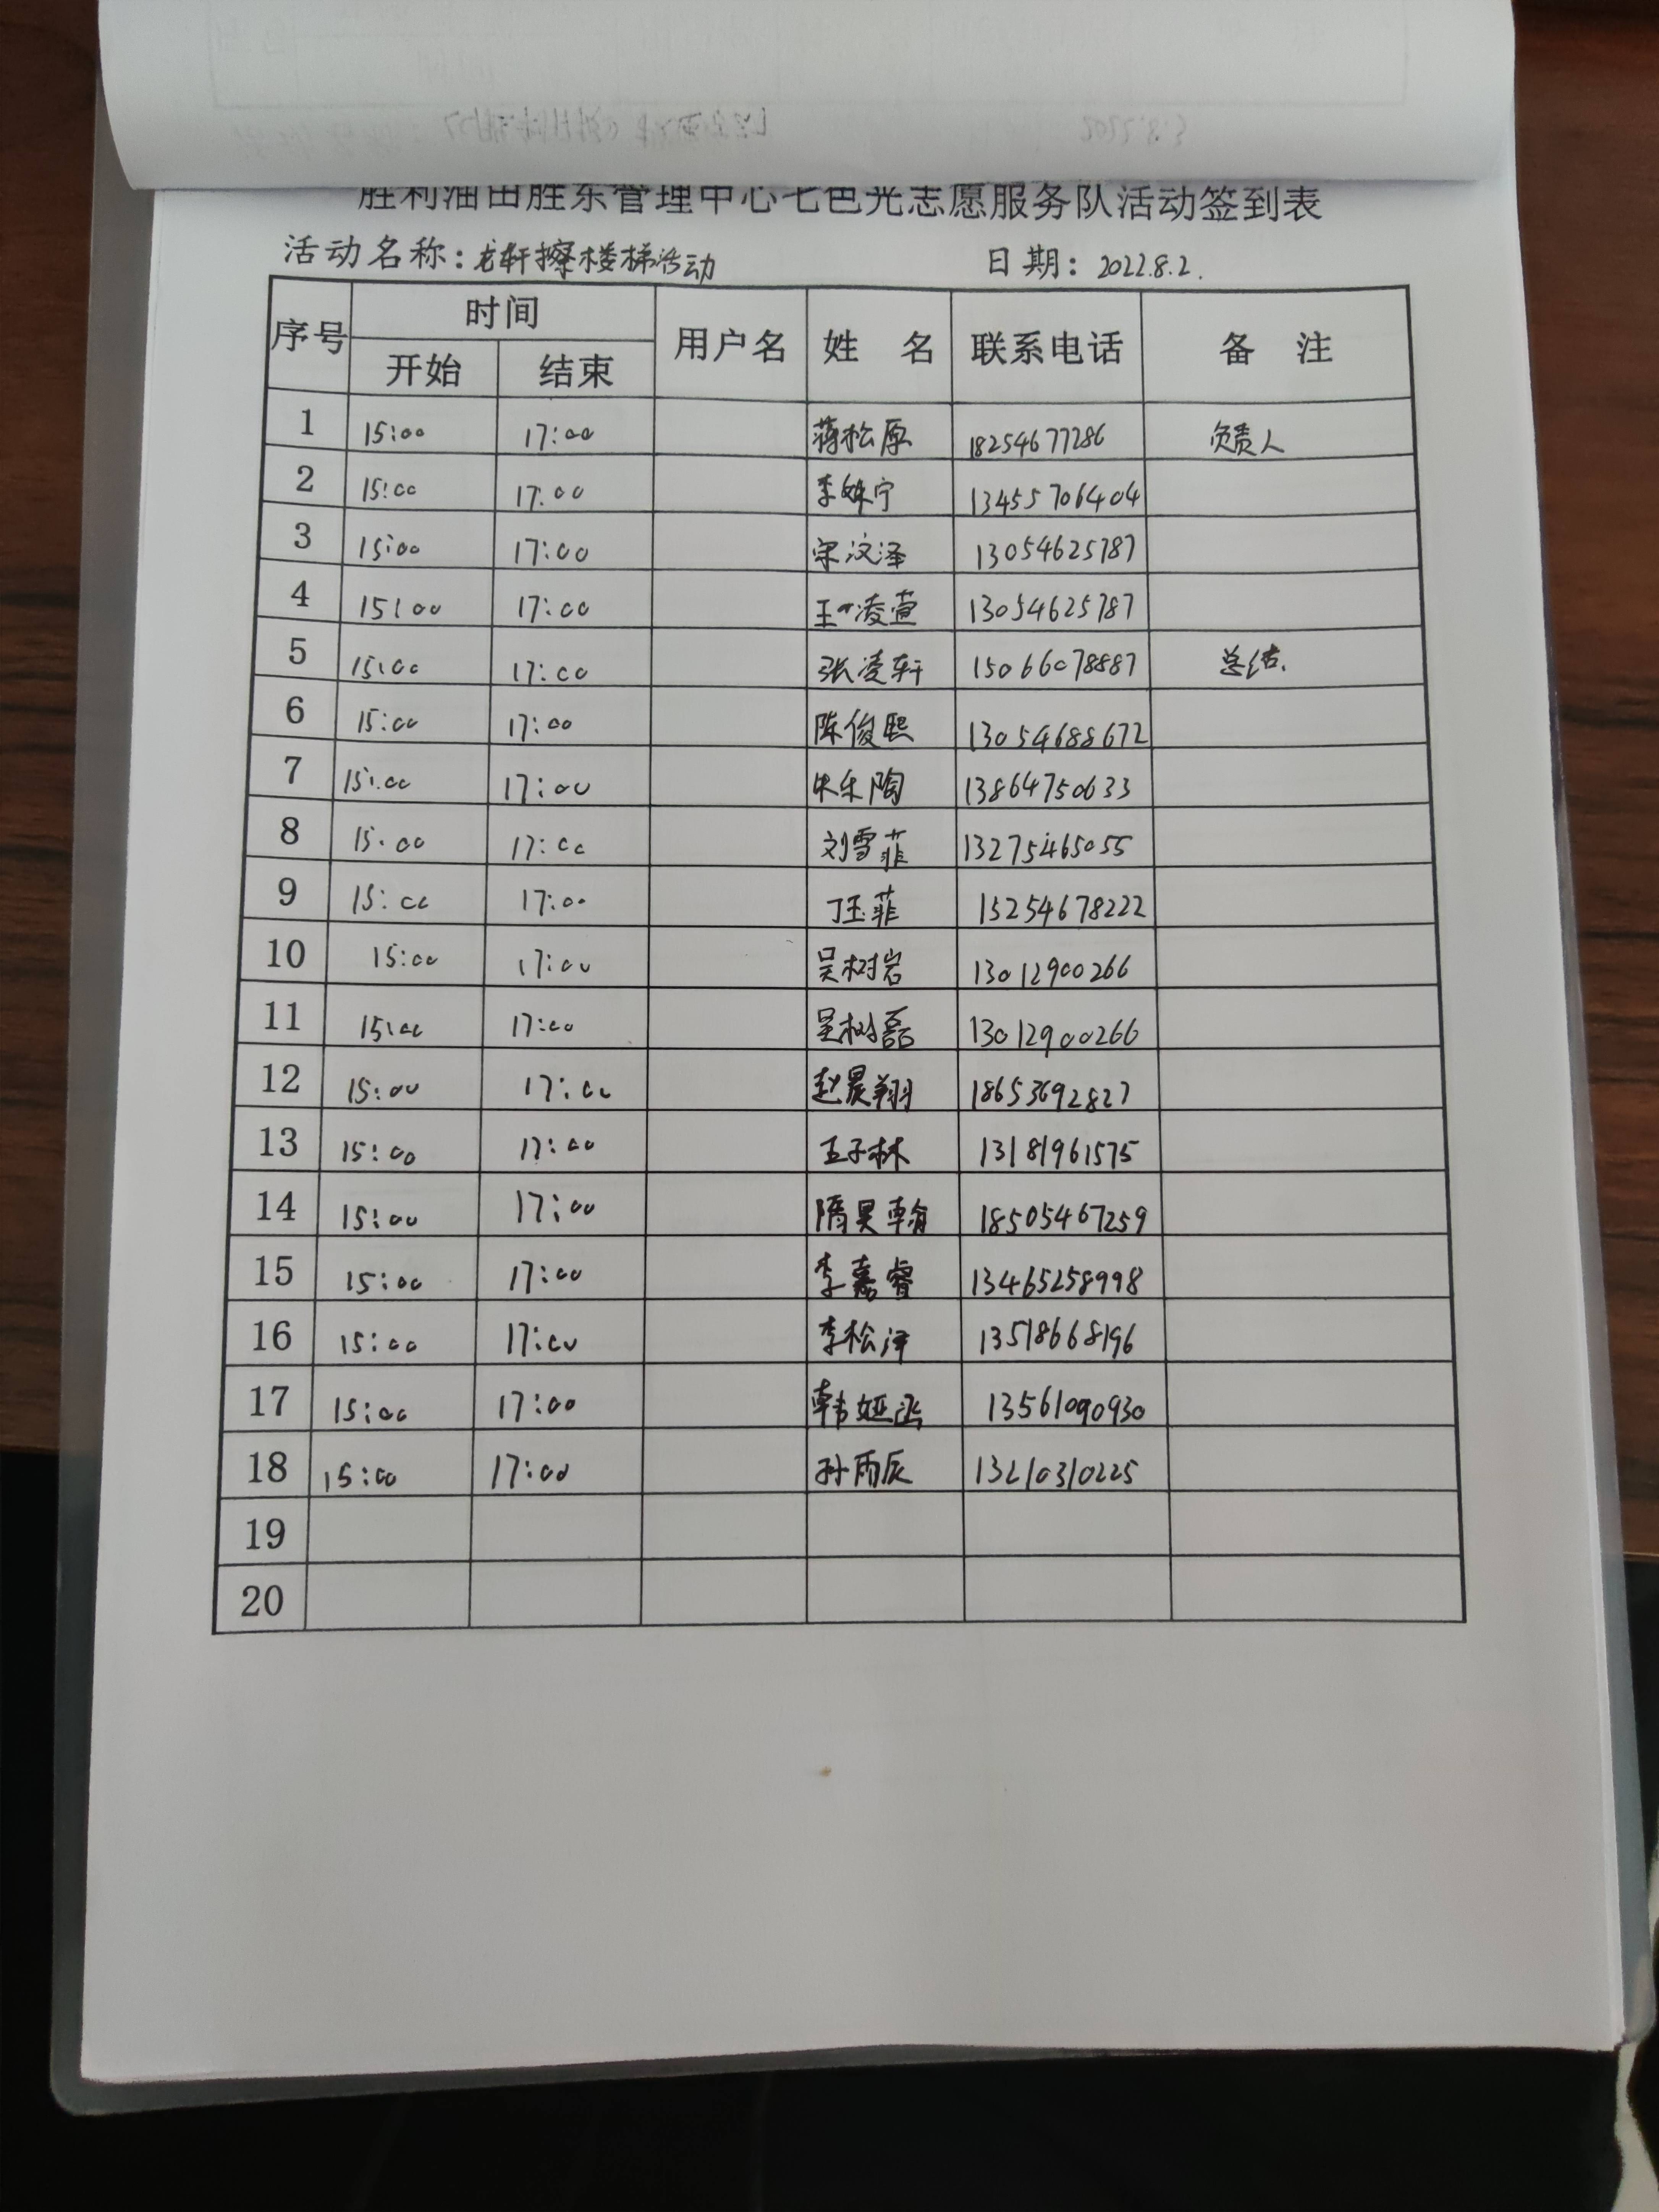 胜利油田胜东管理中心七色光志愿服务队活动签到表
活动名称：龙轩擦楼梯活动 日期：2022.8.2.
序号 时间 用户名 姓名 联系电话 备注
开始 结束
1 15:00 17:00 蒋松原 18254677286 负责人
2 15:00 17:00 李姝宁 13455706404
3 15:00 17:00 宋汶泽 13054625787
4 15:00 17:00 王凌萱 13054625787
5 15:00 17:00 张凌轩 15066078887 总结.
6 15:00 17:00 陈俊熙 13054688672
7 15:00 17:00 朱乐陶 13864750633
8 15:00 17:00 刘雪菲 13275465055
9 15:00 17:00 丁玉菲 15254678222
10 15:00 17:00 吴树岩 13012900266
11 15:00 17:00 吴树磊 13012900266
12 15:00 17:00 赵晨翔 18653692827
13 15:00 17:00 王子林 13181961575
14 15:00 17:00 隋昊翰 18505467259
15 15:00 17:00 李嘉睿 13465258998
16 15:00 17:00 李松泽 13518668196
17 15:00 17:00 韩娅函 13561090930
18 15:00 17:00 孙雨辰 13210310225
19
20